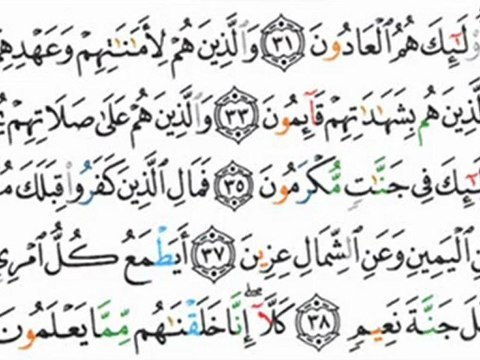 وْلَٰٓئِكَ هُمُ ٱلْعَادُونَ ٣١ وَٱلَّذِينَ هُمْ لِأَمَٰنَٰتِهِمْ وَعَهْدِهِمْ
ٱلَّذِينَ هُم بِشَهَٰدَٰتِهِمْ قَآئِمُونَ ٣٣ وَٱلَّذِينَ هُمْ عَلَىٰ صَلَاتِهِمْ
ئِكَ فِى جَنَّٰتٍ مُّكْرَمُونَ ٣٥ فَمَالِ ٱلَّذِينَ كَفَرُوا۟ قِبَلَكَ
نِ ٱلْيَمِينِ وَعَنِ ٱلشِّمَالِ عِزِينَ ٣٧ أَيَطْمَعُ كُلُّ ٱمْرِئ
لَ جَنَّةَ نَعِيمٍ ٣٨ كَلَّآ إِنَّا خَلَقْنَٰهُم مِّمَّا يَعْلَمُونَ